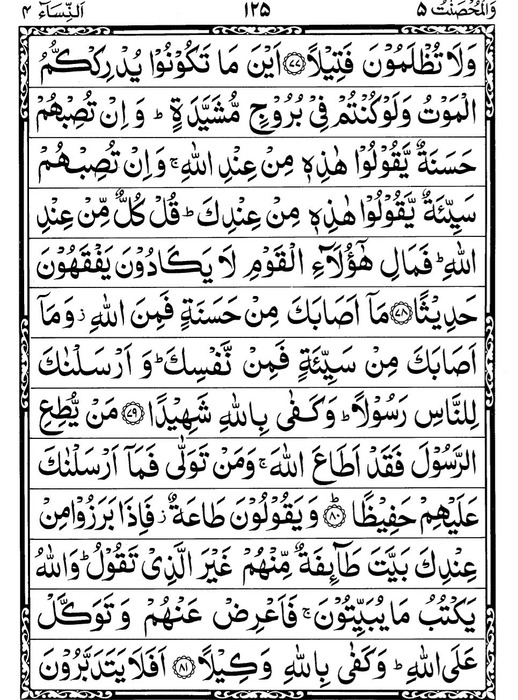 وَالْمُحْصَنٰتُ ۵ ۱۲۵ اَلنِّسَآءِ ۴
وَلَا تُظْلَمُوْنَ فَتِيْلًا ﴿۷۷﴾ اَيْنَ مَا تَكُوْنُوْا يُدْرِكْكُّمُ
الْمَوْتُ وَلَوْ كُنْتُمْ فِيْ بُرُوْجٍ مُّشَيَّدَةٍ ؕ وَ اِنْ تُصِبْهُمْ
حَسَنَةٌ يَّقُوْلُوْا هٰذِهٖ مِنْ عِنْدِ اللّٰهِ ۚ وَاِنْ تُصِبْهُمْ
سَيِّئَةٌ يَّقُوْلُوْا هٰذِهٖ مِنْ عِنْدِكَ ؕ قُلْ كُلٌّ مِّنْ عِنْدِ
اللّٰهِ ؕ فَمَالِ هٰٓؤُلَآءِ الْقَوْمِ لَا يَكَادُوْنَ يَفْقَهُوْنَ
حَدِيْثًا ﴿۷۸﴾ مَاۤ اَصَابَكَ مِنْ حَسَنَةٍ فَمِنَ اللّٰهِ ؗ وَمَاۤ
اَصَابَكَ مِنْ سَيِّئَةٍ فَمِنْ نَّفْسِكَ ؕ وَ اَرْسَلْنٰكَ
لِلنَّاسِ رَسُوْلًا ؕ وَكَفٰى بِاللّٰهِ شَهِيْدًا ﴿۷۹﴾ مَنْ يُّطِعِ
الرَّسُوْلَ فَقَدْ اَطَاعَ اللّٰهَ ۚ وَمَنْ تَوَلّٰى فَمَاۤ اَرْسَلْنٰكَ
عَلَيْهِمْ حَفِيْظًا ﴿۸۰﴾ؕ وَ يَقُوْلُوْنَ طَاعَةٌ ؗ فَاِذَا بَرَزُوْا مِنْ
عِنْدِكَ بَيَّتَ طَآئِفَةٌ مِّنْهُمْ غَيْرَ الَّذِيْ تَقُوْلُ ؕ وَاللّٰهُ
يَكْتُبُ مَا يُبَيِّتُوْنَ ۚ فَاَعْرِضْ عَنْهُمْ وَ تَوَكَّلْ
عَلَى اللّٰهِ ؕ وَكَفٰى بِاللّٰهِ وَكِيْلًا ﴿۸۱﴾ اَفَلَا يَتَدَبَّرُوْنَ